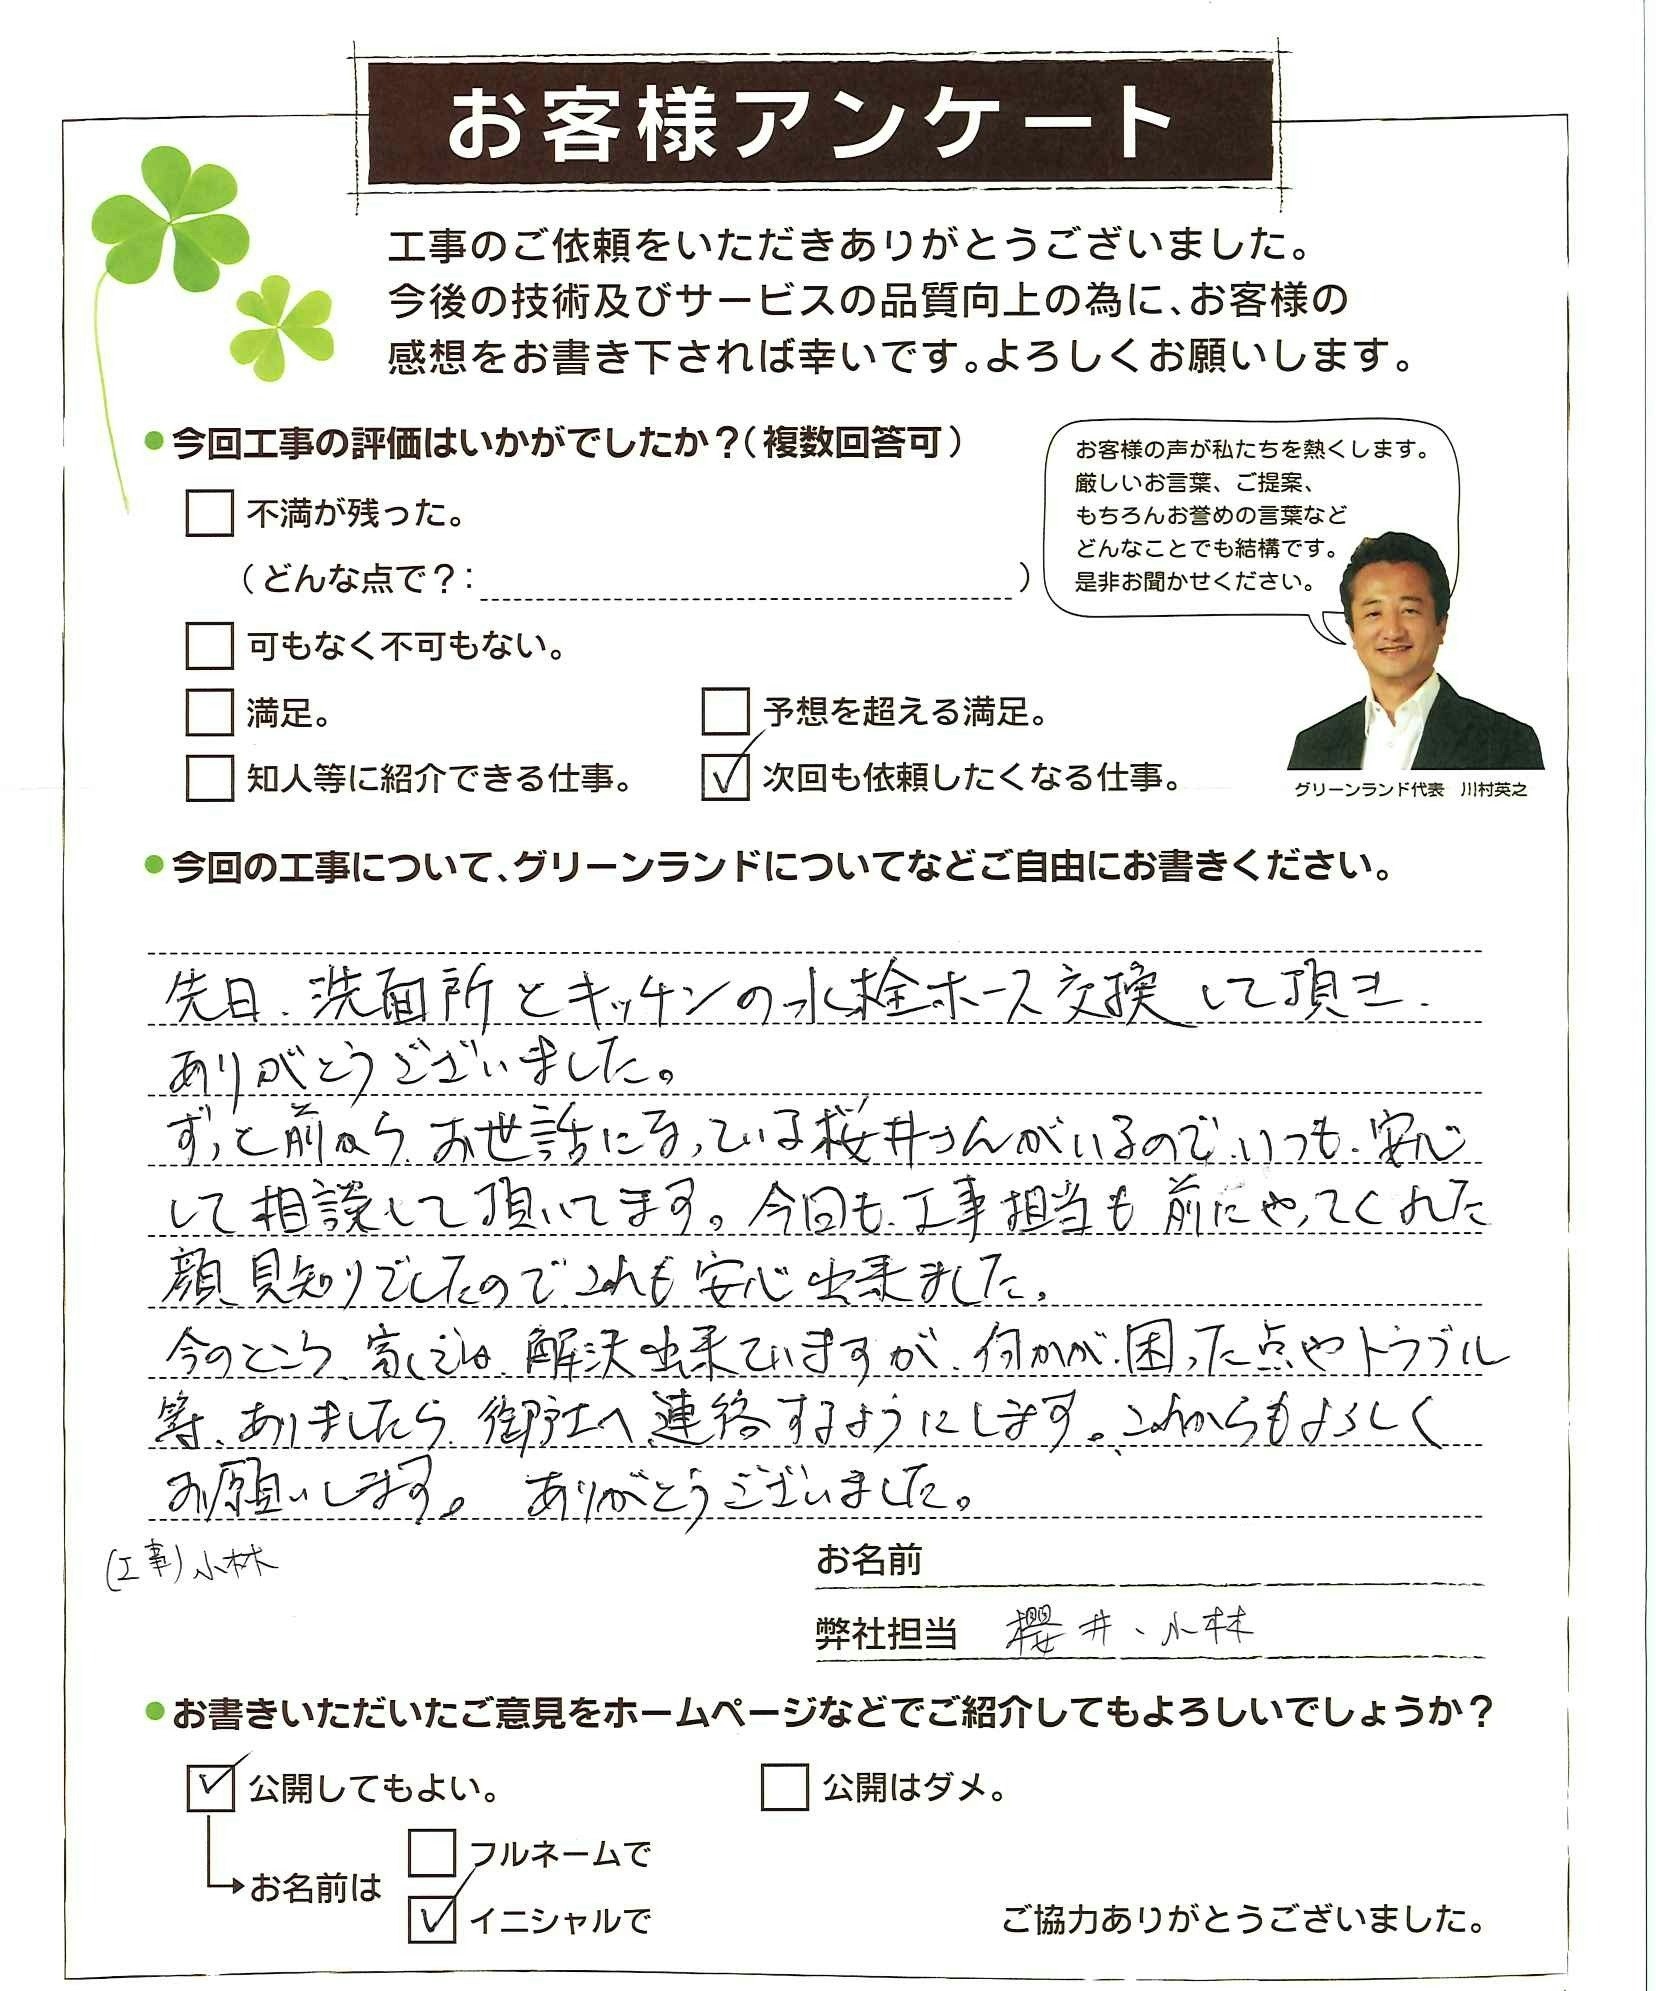 お客様アンケート
工事のご依頼をいただきありがとうございました。
今後の技術及びサービスの品質向上の為に、お客様の
感想をお書き下されば幸いです。よろしくお願いします。
今回工事の評価はいかがでしたか？（複数回答可）
不満が残った。
（どんな点で？：　　　）
可もなく不可もない。
満足。
予想を超える満足。
知人等に紹介できる仕事。
次回も依頼したくなる仕事。
お客様の声が私たちを熱くします。
厳しいお言葉、ご提案、
もちろんお誉めの言葉など
どんなことでも結構です。
是非お聞かせください。
グリーンランド代表　川村英之
今回の工事について、グリーンランドについてなどご自由にお書きください。
先日、洗面所とキッチンの水栓ホース交換して頂き、
ありがとうございました。
ずっと前からお世話になっている桜井さんがいるので、いつも、安心
して相談して頂いてます。今回も、工事担当も前にやってくれた
顔見知りでしたので、これも安心出来ました。
今のところ、家としては、解決出来ていますが、何かが、困った点やトラブル
等、ありましたら、御社へ連絡するようにします。これからもよろしく
お願いします。ありがとうございました。
(工事)小林
お名前
弊社担当　櫻井、小林
お書きいただいたご意見をホームページなどでご紹介してもよろしいでしょうか？
公開してもよい。
公開はダメ。
お名前は
フルネームで
イニシャルで
ご協力ありがとうございました。